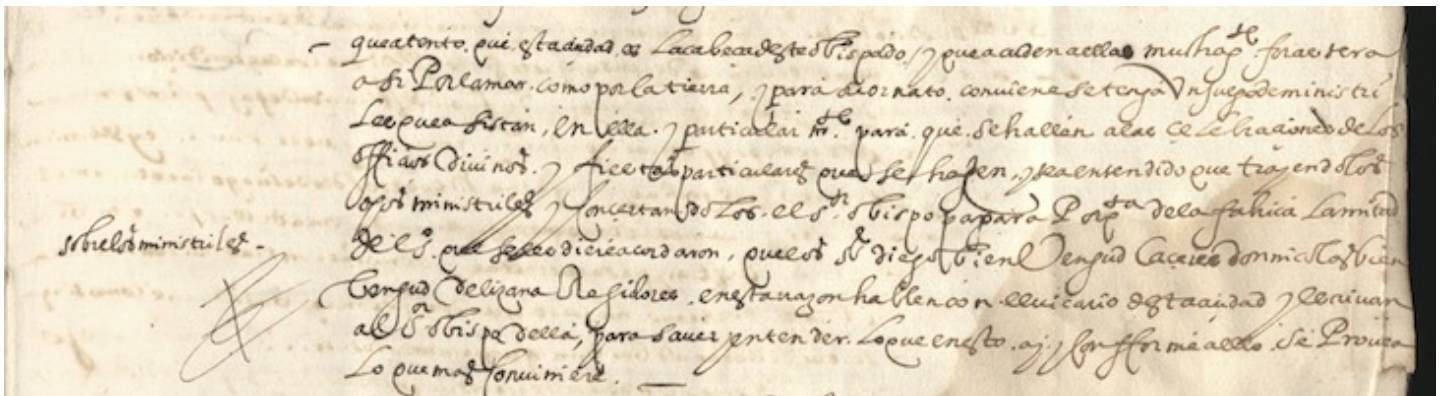 que atento. que. esta ciudad. es. La cabeça deste obispado. y que acuden a ella mucha gte. forastera
asi Por la mar. como por la tierra, y para su ornato. conviene se tenga Un juego de ministri
Les que asistan, en ella. y particular mte. para. que. se hallen a las Celebraciones de Los
officios Divinos. y fiestas particulares que se hazen, y sea entendido que trayendo los
dhos ministriles y Concertandolos. el sr. obispo pagara Por su pta de la fabrica La mitad
sobre los ministriles -
del so. que se les diere acordaron, que los Sres diego bien Vengud Caçeres don nicolas bien
bengud Delizana Regidores. en esta razon hablen con. el vicario desta ciudad y lo escrivan
al Sr obispo della, para saver y entender. Lo que en esto. ay, y Conforme a ello. Se Provea
Lo que mas Conviniere.